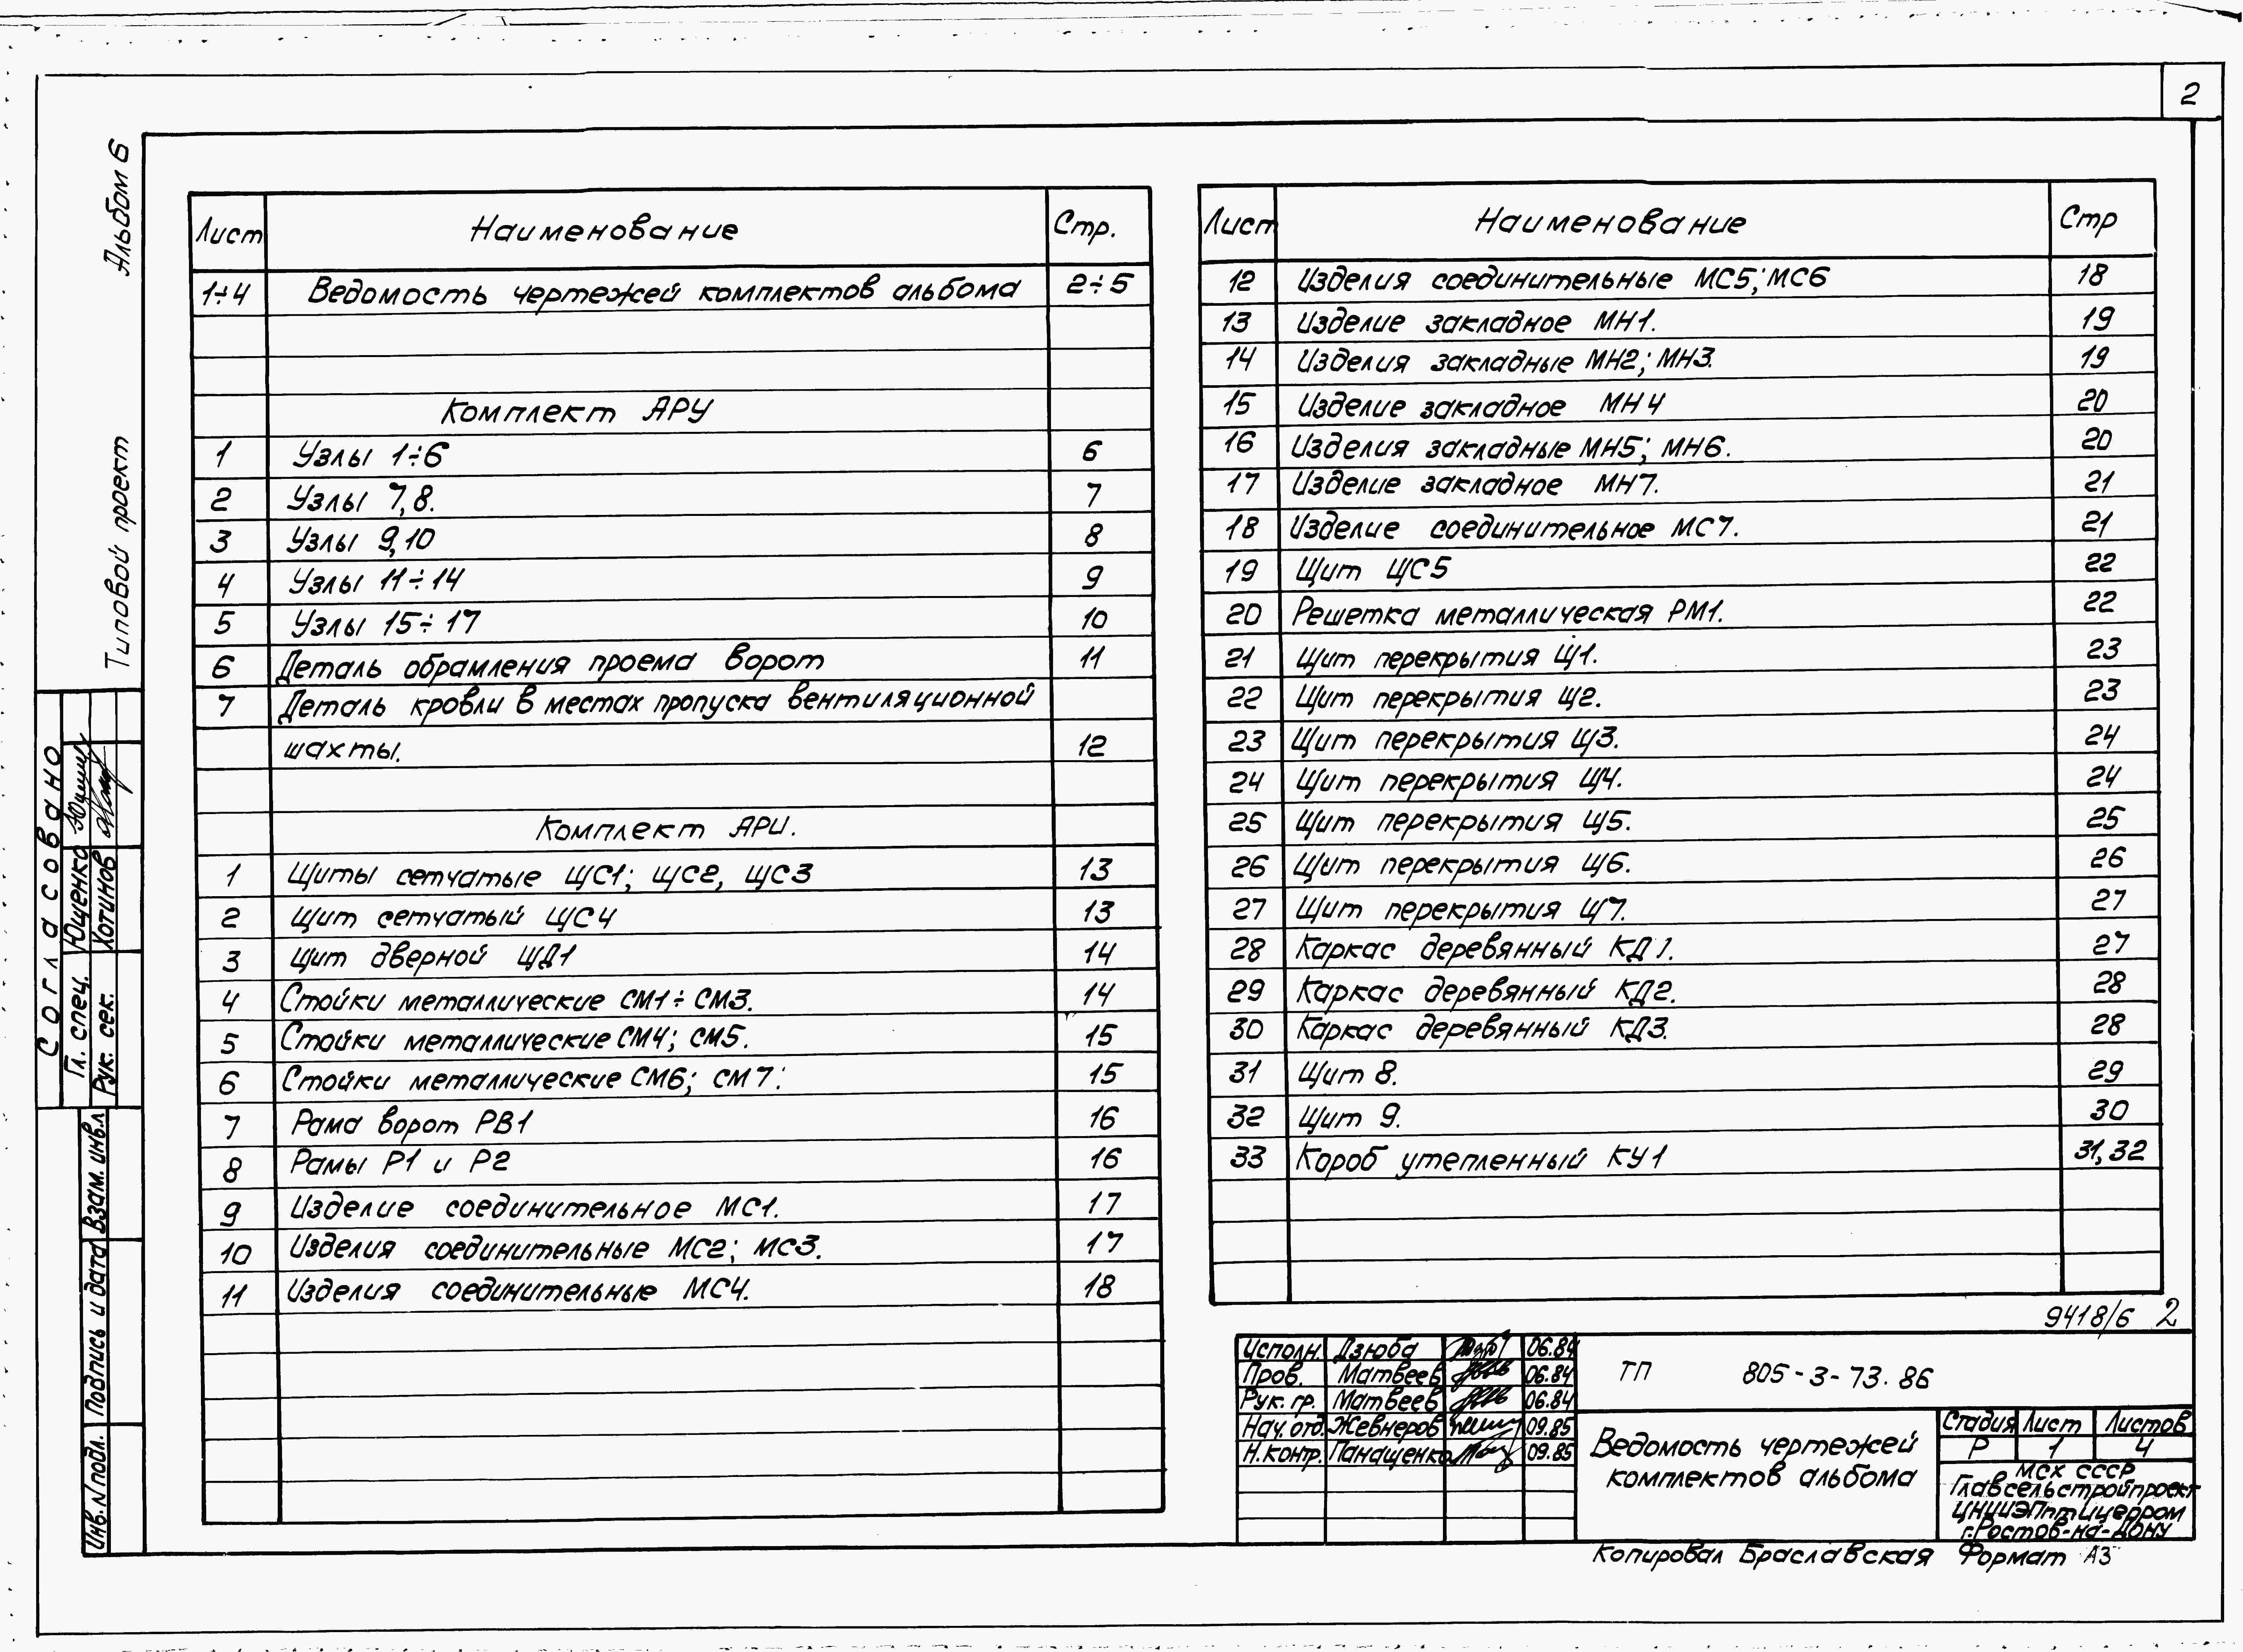 2
Альбом 6
Типовой проект
Лист Наименование Стр.
1÷4 Ведомость чертежей комплектов альбома 2÷5
Комплект АРУ
1 Узлы 1÷6 6
2 Узлы 7,8. 7
3 Узлы 9,10 8
4 Узлы 11÷14 9
5 Узлы 15÷17 10
6 Деталь обрамления проема ворот 11
7 Деталь кровли в местах пропуска вентиляционной
шахты. 12
Комплект АРИ.
1 Щиты сетчатые ЩС1; ЩС2, ЩС3 13
2 Щит сетчатый ЩС4 13
3 Щит дверной ЩД1 14
4 Стойки металлические СМ1÷СМ3. 14
5 Стойки металлические СМ4; СМ5. 15
6 Стойки металлические СМ6; СМ7. 15
7 Рама ворот РВ1 16
8 Рамы Р1 и Р2 16
9 Изделие соединительное МС1. 17
10 Изделия соединительные МС2; МС3. 17
11 Изделия соединительные МС4. 18
Лист Наименование Стр
12 Изделия соединительные МС5; МС6 18
13 Изделие закладное МН1. 19
14 Изделия закладные МН2; МН3. 19
15 Изделие закладное МН4 20
16 Изделия закладные МН5; МН6. 20
17 Изделие закладное МН7. 21
18 Изделие соединительное МС7. 21
19 Щит ЩС5 22
20 Решетка металлическая РМ1. 22
21 Щит перекрытия Щ1. 23
22 Щит перекрытия Щ2. 23
23 Щит перекрытия Щ3. 24
24 Щит перекрытия Щ4. 24
25 Щит перекрытия Щ5. 25
26 Щит перекрытия Щ6. 26
27 Щит перекрытия Щ7. 27
28 Каркас деревянный КД1. 27
29 Каркас деревянный КД2. 28
30 Каркас деревянный КД3. 28
31 Щит 8. 29
32 Щит 9. 30
33 Короб утепленный КУ1 31,32
9418/6 2
Согласовано
Гл. спец. Ющенко
Рук. сек. Хотинов
Взам. инв.
Подпись и дата
Инв. N подл.
Исполн. Дзюба 06.84
Пров. Матвеев 06.84
Рук. гр. Матвеев 06.84
Нач. отд. Жевнеров 09.85
Н.контр. Панащенко 09.85
ТП 805-3-73.86
Ведомость чертежей
комплектов альбома
Стадия Лист Листов
Р 1 4
МСХ СССР
Главсельстройпроект
ЦНИИЭПптицепром
г.Ростов-на-Дону
Копировал Браславская Формат А3